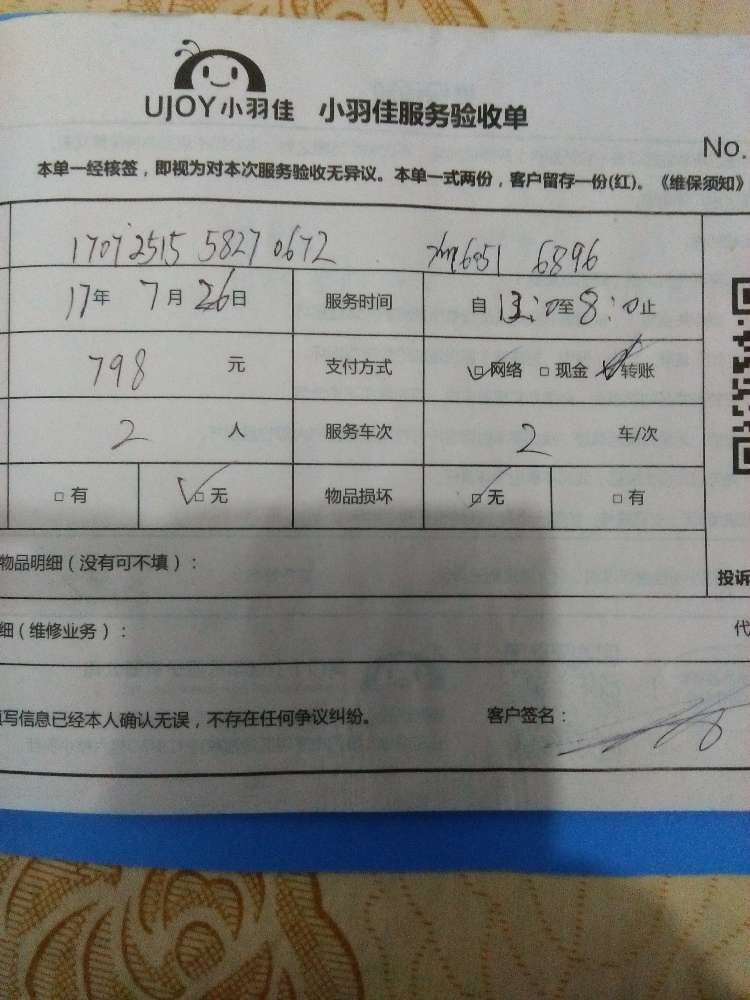 UJOY小羽佳 小羽佳服务验收单
No.
本单一经核签，即视为对本次服务验收无异议。本单一式两份，客户留存一份(红)。《维保须知》
1707 2515 5827 0672 6896
17年 7月 26日 服务时间 自 :0至8:0止
798 元 支付方式 □网络 □现金 □转账
2 人 服务车次 2 车/次
□有 □无 物品损坏 □无 □有
物品明细（没有可不填）：
投诉
细（维修业务）：
代
填写信息已经本人确认无误，不存在任何争议纠纷。 客户签名：